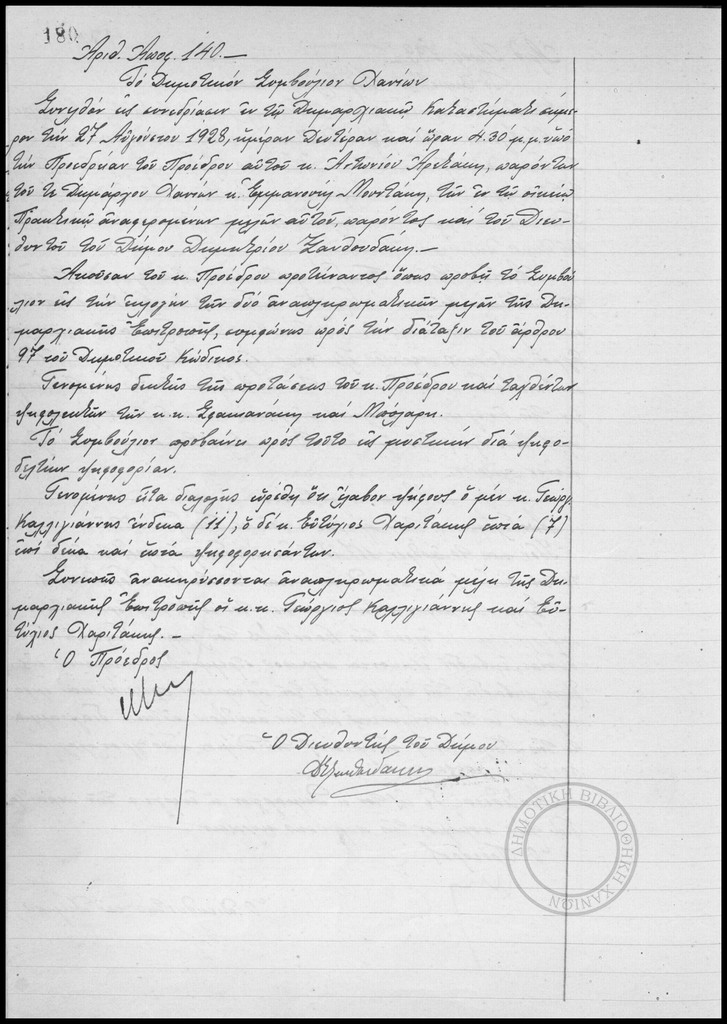 180
Ἀριθ. Ἀποφ. 140.—
Τό Δημοτικόν Συμβούλιον Χανίων
Συνελθόν εἰς συνεδρίασιν ἐν τῷ Δημαρχιακῷ Καταστήματι σήμε-
ρον τήν 27 Αὐγούστου 1928, ἡμέραν Δευτέραν καί ὥραν 4.30' μ.μ. ὑπό
τήν Προεδρείαν τοῦ Προέδρου αὐτοῦ κ. Ἀντωνίου, παρόντων
τοῦ τε Δημάρχου Χανίων κ. Ἐμμανουήλ Μουντάκη, τῶν ἐν τῷ οἰκείῳ
Πρακτικῷ ἀναφερομένων μελῶν αὐτοῦ, παρόντος καί τοῦ Διευ-
θυντοῦ τοῦ Δήμου Δημητρίου Ξανθουδάκη.—
Ἀκοῦσαν τοῦ κ. Προέδρου προτείναντος ὅπως προβῇ τό Συμβού-
λιον εἰς τήν ἐκλογήν τῶν δύο ἀναπληρωματικῶν μελῶν τῆς Δη-
μαρχιακῆς Ἐπιτροπῆς, συμφώνως πρός τήν διάταξιν τοῦ ἄρθρου
97 τοῦ Δημοτικοῦ Κώδικος.
Γενομένης δεκτῆς τῆς προτάσεως τοῦ κ. Προέδρου καί ταχθέντων
ψηφολεκτῶν τῶν κ.κ. Σφακιανάκη καί
Τό Συμβούλιον προβαίνει πρός τοῦτο εἰς μυστικήν διά ψηφο-
δελτίων ψηφοφορίαν.
Γενομένης εἶτα διαλογῆς εὑρέθη ὅτι ἔλαβον ψήφους ὁ μέν κ. Γεώργ.
Καλλιγιάννης ἕνδεκα (11), ὁ δέ κ. Εὐτύχιος Χαριτάκης ἑπτά (7)
ἐπί δέκα καί ἑπτά ψηφοφορησάντων.
Συνεπῶς ἀνακηρύσσονται ἀναπληρωματικά μέλη τῆς Δη-
μαρχιακῆς Ἐπιτροπῆς οἱ κ.κ. Γεώργιος Καλλιγιάννης καί Εὐ-
τύχιος Χαριτάκης.—
Ὁ Πρόεδρος
Ὁ Διευθυντής τοῦ Δήμου
ΔΞανθουδάκης
ΔΗΜΟΤΙΚΗ ΒΙΒΛΙΟΘΗΚΗ ΧΑΝΙΩΝ